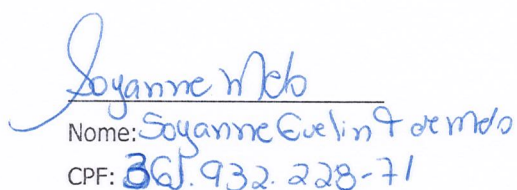 Soyanne Melo
Nome: Soyanne Evelin F de Melo
CPF: 361.932.228-71